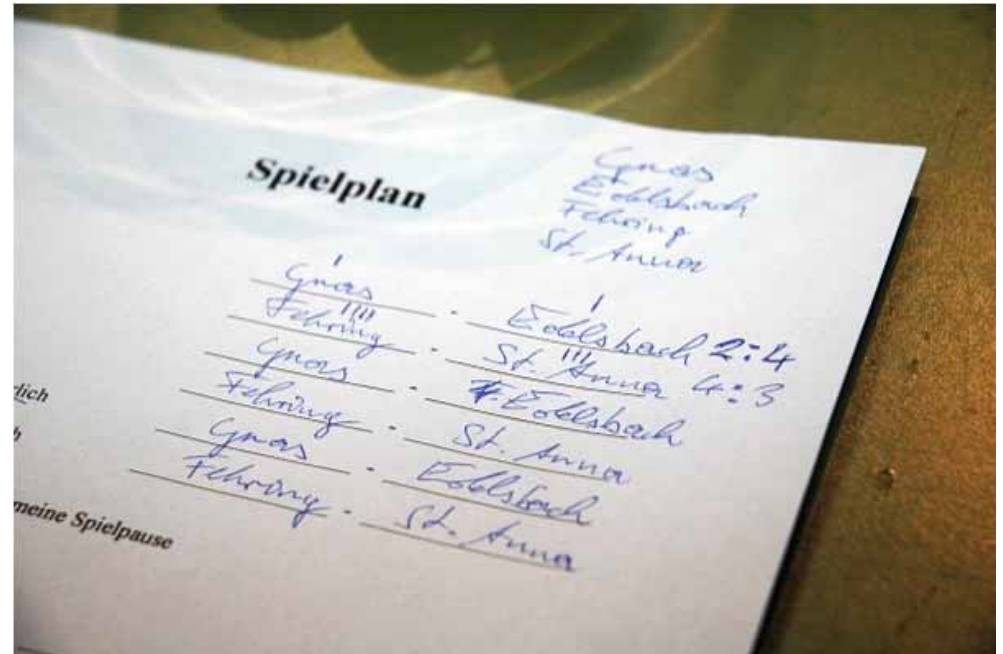 Spielplan
Gnas
Edelsbach
Fehring
St. Anna
Gnas - Edelsbach 2:4
Fehring - St. Anna 4:3
Gnas - Edelsbach
Fehring - St. Anna
Gnas - Edelsbach
Fehring - St. Anna
lich
h
meine Spielpause